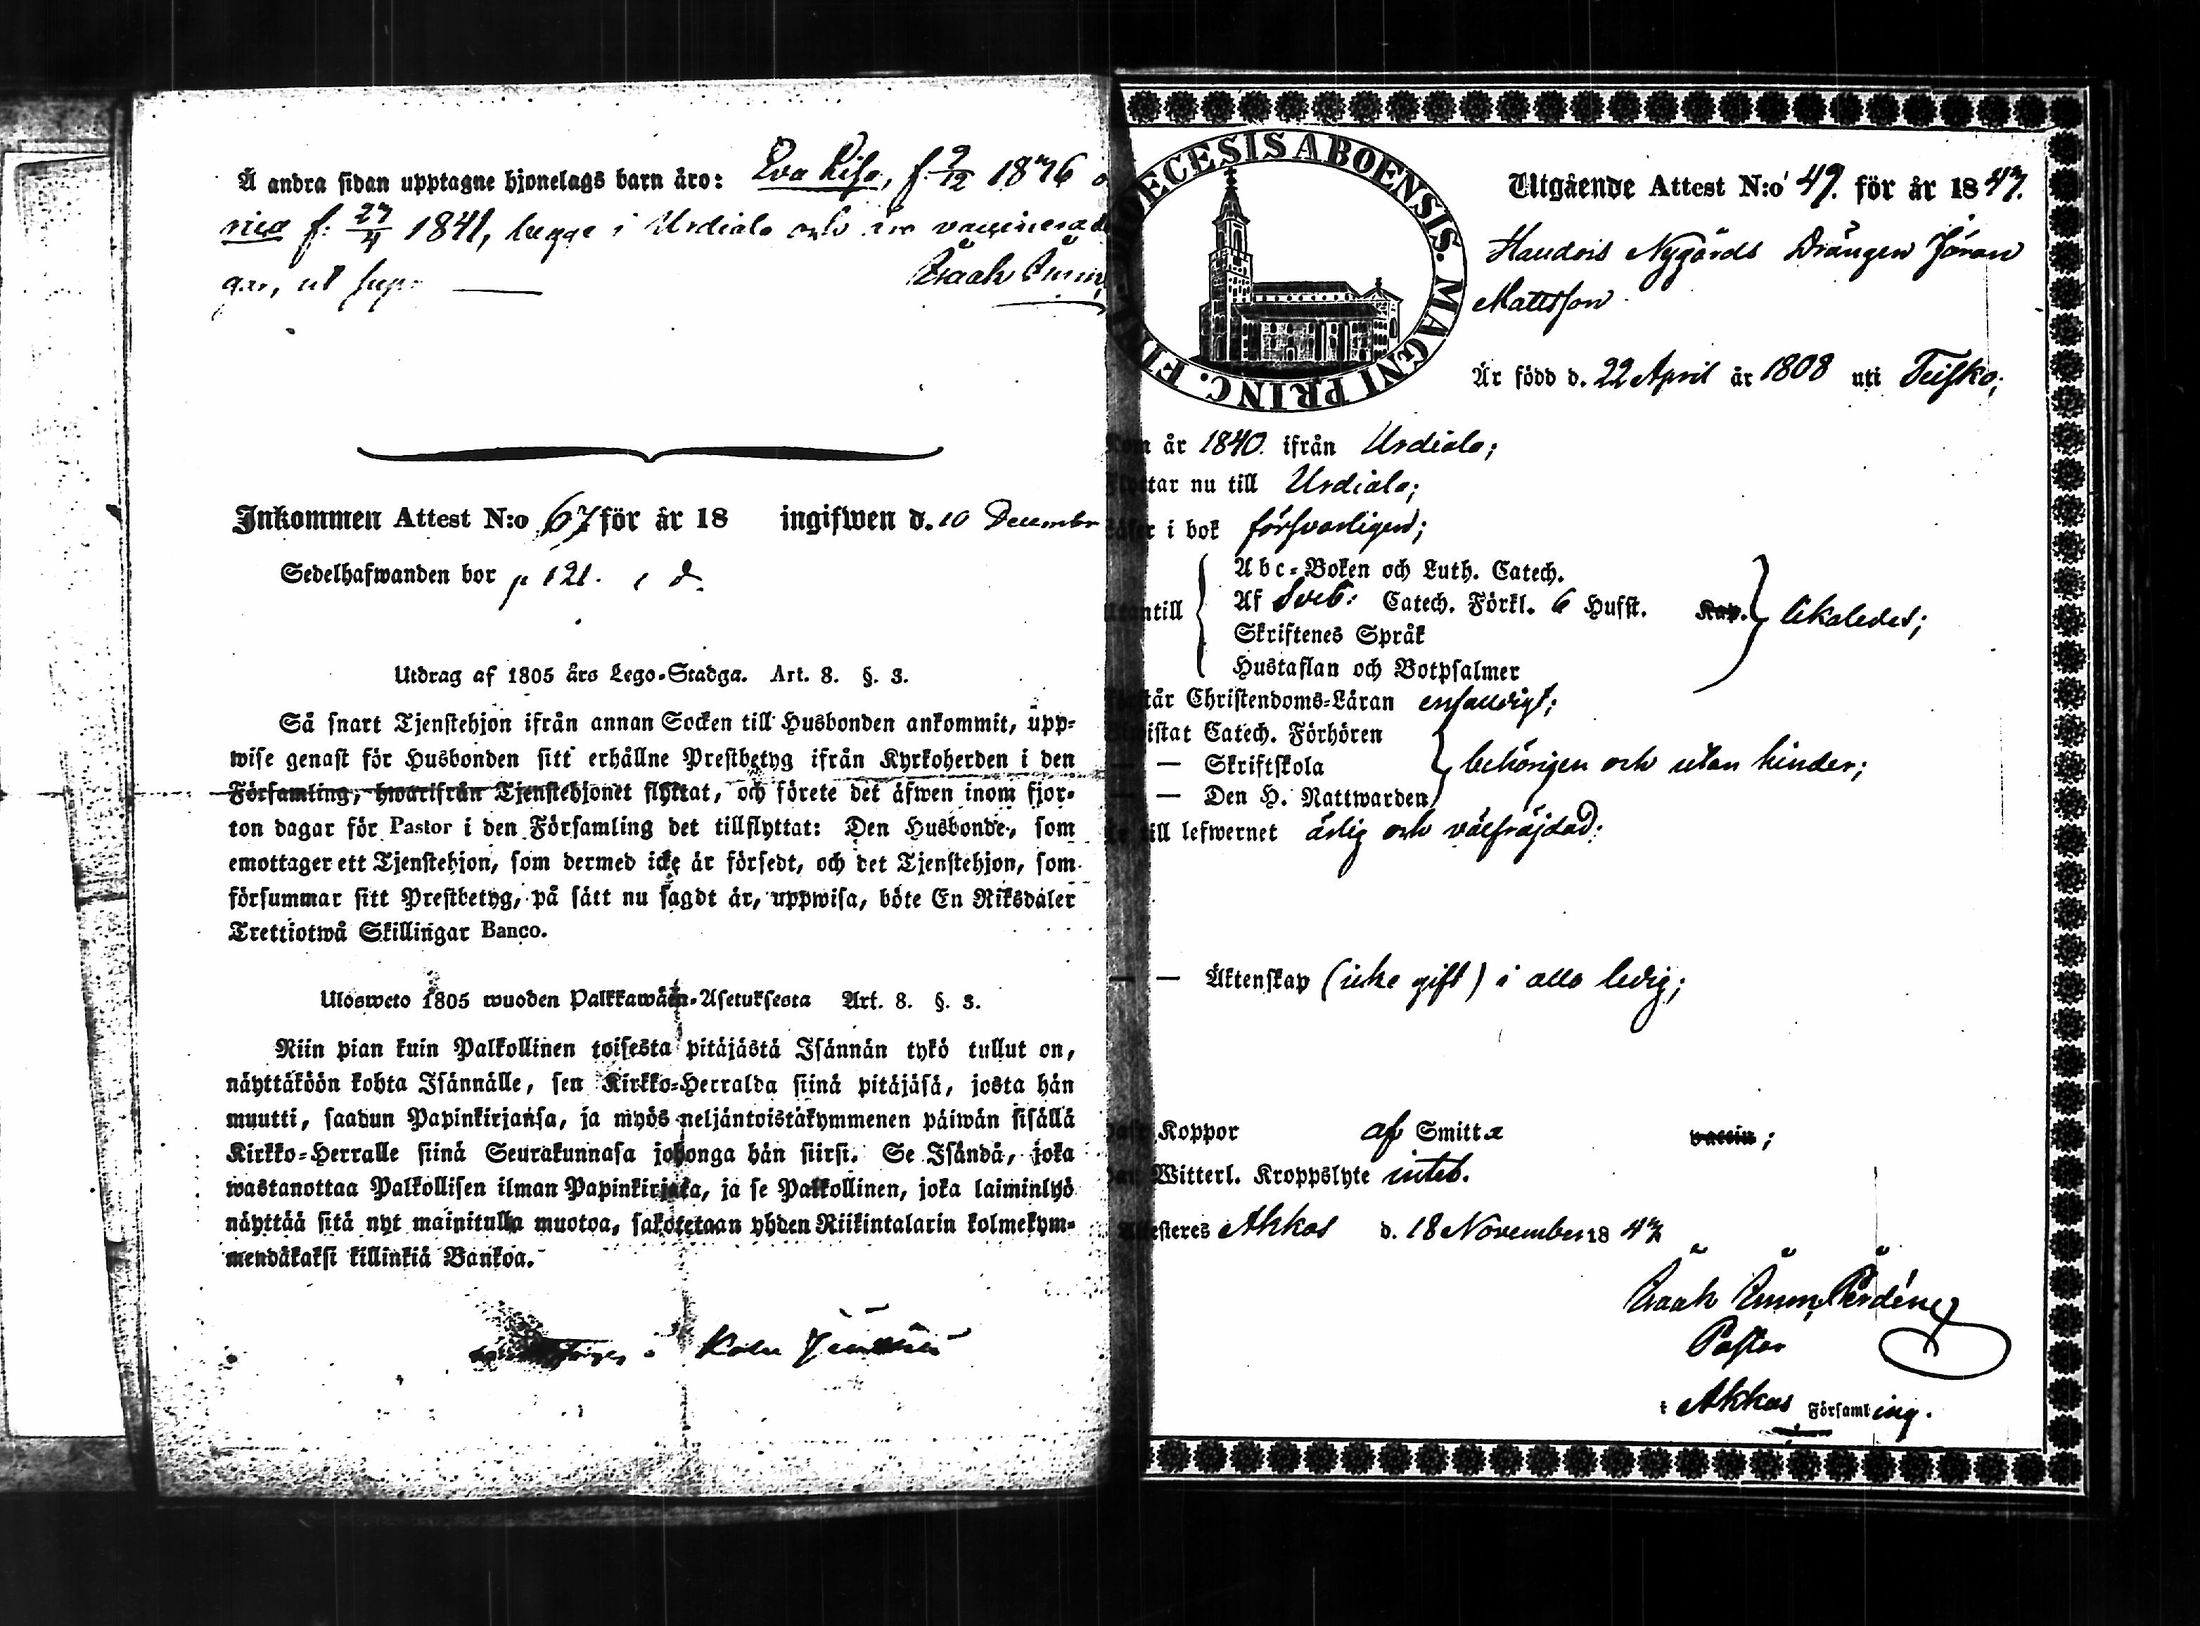 Å andra sidan upptagne hjonelags barn äro: Eva Lisa, f. 9/12 1846
rica f: 27/4 1841, begge i Urdiala och äro vaccinerade
gar, ut supr
Isaak Imm.
Inkommen Attest N:o 67 för år 18 ingifwen d. 10 December
Sedelhafwanden bor p 121.
Utdrag af 1805 års Lego-Stadga. Art. 8. §. 3.
Så snart Tjenstehjon ifrån annan Socken till Husbonden ankommit, upp-
wise genast för Husbonden sitt erhållne Prestbetyg ifrån Kyrkoherden i den
Församling, hwarifrån Tjenstehjonet flyttat, och förete det äfwen inom fjor-
ton dagar för Pastor i den Församling det tillflyttat: Den Husbonde, som
emottager ett Tjenstehjon, som dermed icke är försedt, och det Tjenstehjon, som
försummar sitt Prestbetyg, på sätt nu sagdt är, uppwisa, böte En Riksdaler
Trettiotwå Skillingar Banco.
Ulosweto 1805 wuoden Palkkawäen-Asetuksesta Art. 8. §. 3.
Niin pian kuin Palkollinen toisesta pitäjästä Isännän tykö tullut on,
näyttäköön kohta Isännälle, sen Kirkko-Herralda siinä pitäjäsä, josta hän
muutti, saadun Papinkirjansa, ja myös neljäntoistakymmenen päiwän sisällä
Kirkko-Herralle siinä Seurakunnasa johonga hän siirsi. Se Isändä, joka
wastanottaa Palkollisen ilman Papinkirjata, ja se Palkollinen, joka laiminlyö
näyttää sitä nyt mainitulla muotoa, sakotetaan yhden Riikintalarin kolmekym-
mendäkaksi killinkiä Bankoa.
DIOECESIS ABOENSIS. MAGNI PRINC. FI
Utgående Attest N:o 49. för år 1847.
Haudois Nygårds Drängen Jöran
Mattsson
Är född d. 22 April år 1808 uti Teisko;
Kom år 1840. ifrån Urdiala;
Flyttar nu till Urdiala;
Läser i bok försvarligen;
Utantill
Abc-Boken och Luth. Catech.
Af Sveb: Catech. Förkl. 6 Hufst. Kap. likaledes;
Skriftenes Språk
Hustaflan och Botpsalmer
Förstår Christendoms-Läran enfalldigt;
Bevistat Catech. Förhören
— — Skriftskola behörigen och utan hinder;
— — Den H. Nattwarden
Är till lefwernet ärlig och välfräjdad:
— — Äktenskap (icke gift) i allo ledig;
Haft Koppor af Smitta vaccin;
Har Witterl. Kroppslyte intet.
Attesteres Akkas d. 18 November 1847
Isaak Imm. Perdén
Pastor
i Akkas Församling.